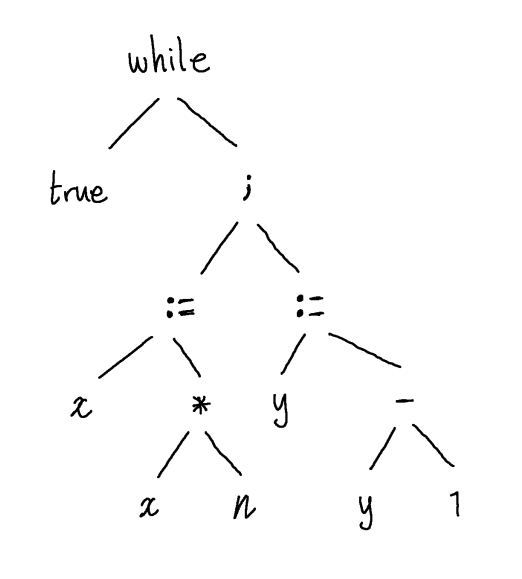 while
true ;
:= :=
x * y -
x n y 1